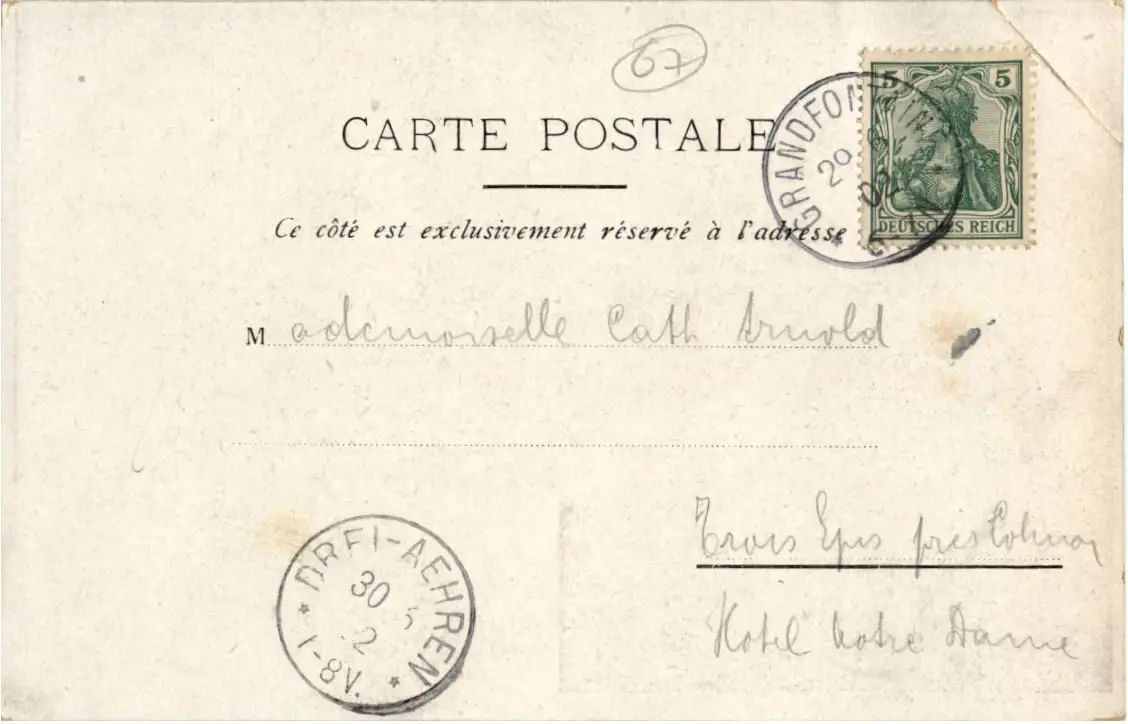 67
CARTE POSTALE
5 5
DEUTSCHES REICH
GRANDFONTAINE
29
02
Ce côté est exclusivement réservé à l'adresse
Mademoiselle Cath Arnold
Trois Epis près Colmar
Hotel Notre Dame
DREI-AEHREN
30
2
* 7-8V. *